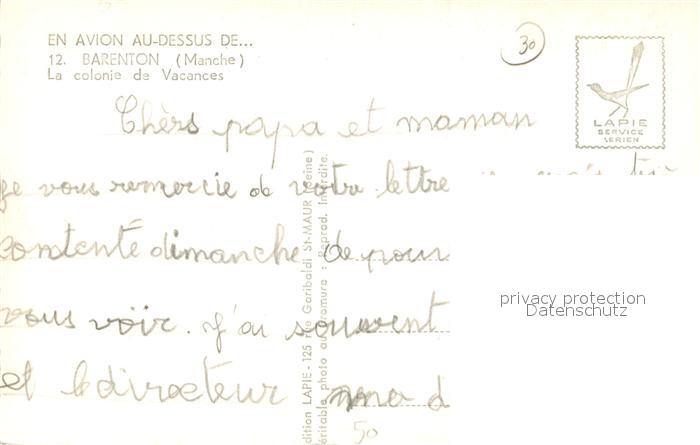 EN AVION AU-DESSUS DE...
12. BARENTON (Manche)
La colonie de Vacances
30
LAPIE
SERVICE
AERIEN
Chèrs papa et maman
je vous remercie de votre lettre
contenté dimanche de pour
vous voir. J'ai souvent
et le directeur d
dition LAPIE - 125 rue Garibaldi St-MAUR (Seine)
éritable photo au bromure : Reprod. Interdite.
50
privacy protection
Datenschutz